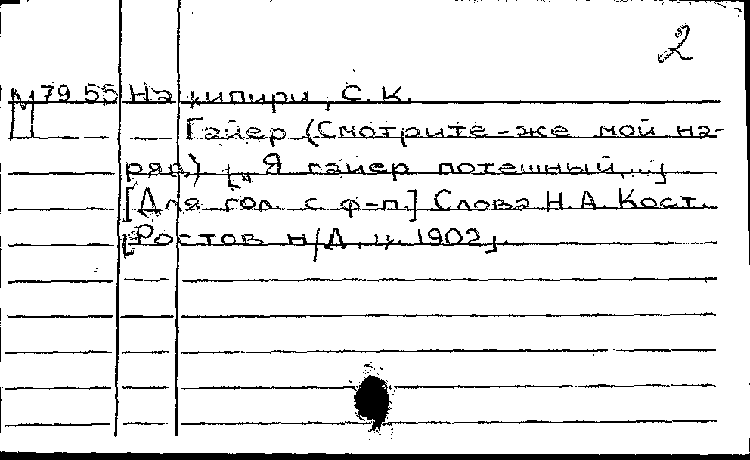 2
М 79 55 Накипири, С. К.
Гайер (Смотрите-же мой на-
ряд.) [„Я гайер потешный...]
[Для гол. с ф-п.] Слова Н. А. Кост.
[Ростов н/Д, ц. 1902].